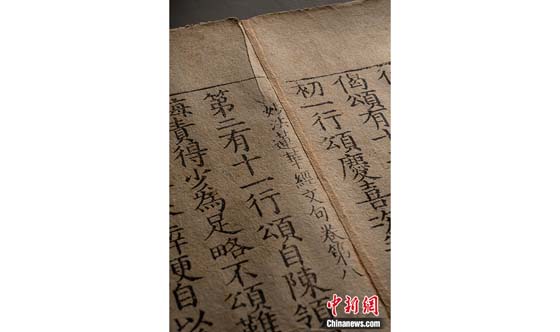 偈頌有十
初一行頌慶喜
妙法蓮華經文句卷第八
第二有十一行頌自陳領
悔責得少為足略不頌難
更自以
中新網
Chinanews.com